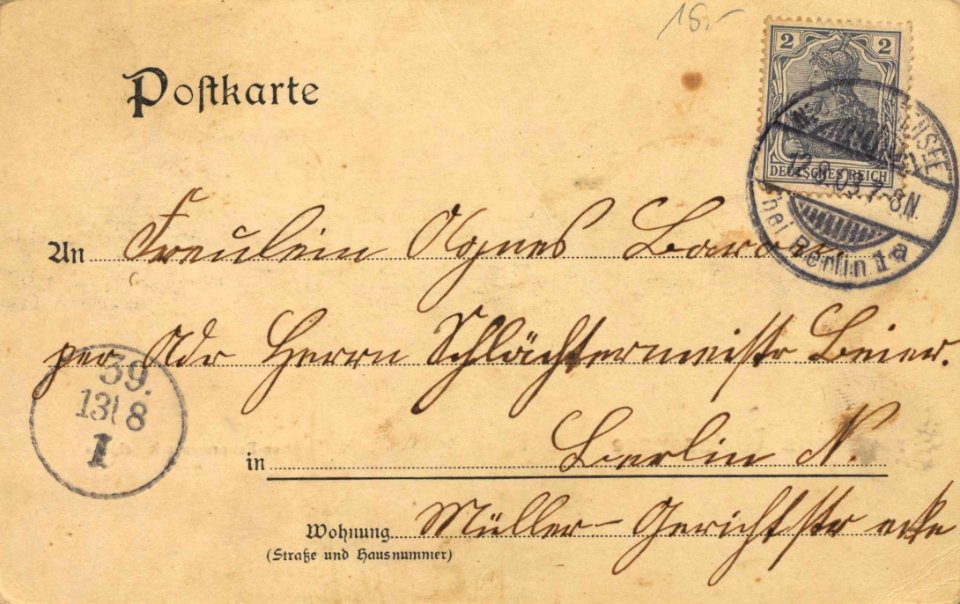 18.-
Postkarte
2 2
DEUTSCHES REICH
12.8.03.7-8N.
bei Berlin 1a
An Freulein Agnes Baron
per Adr Herrn Schlächtermeistr Beier.
39.
13 8
1
in Berlin N.
Wohnung Müller-Gerichtstr ecke
(Straße und Hausnummer)